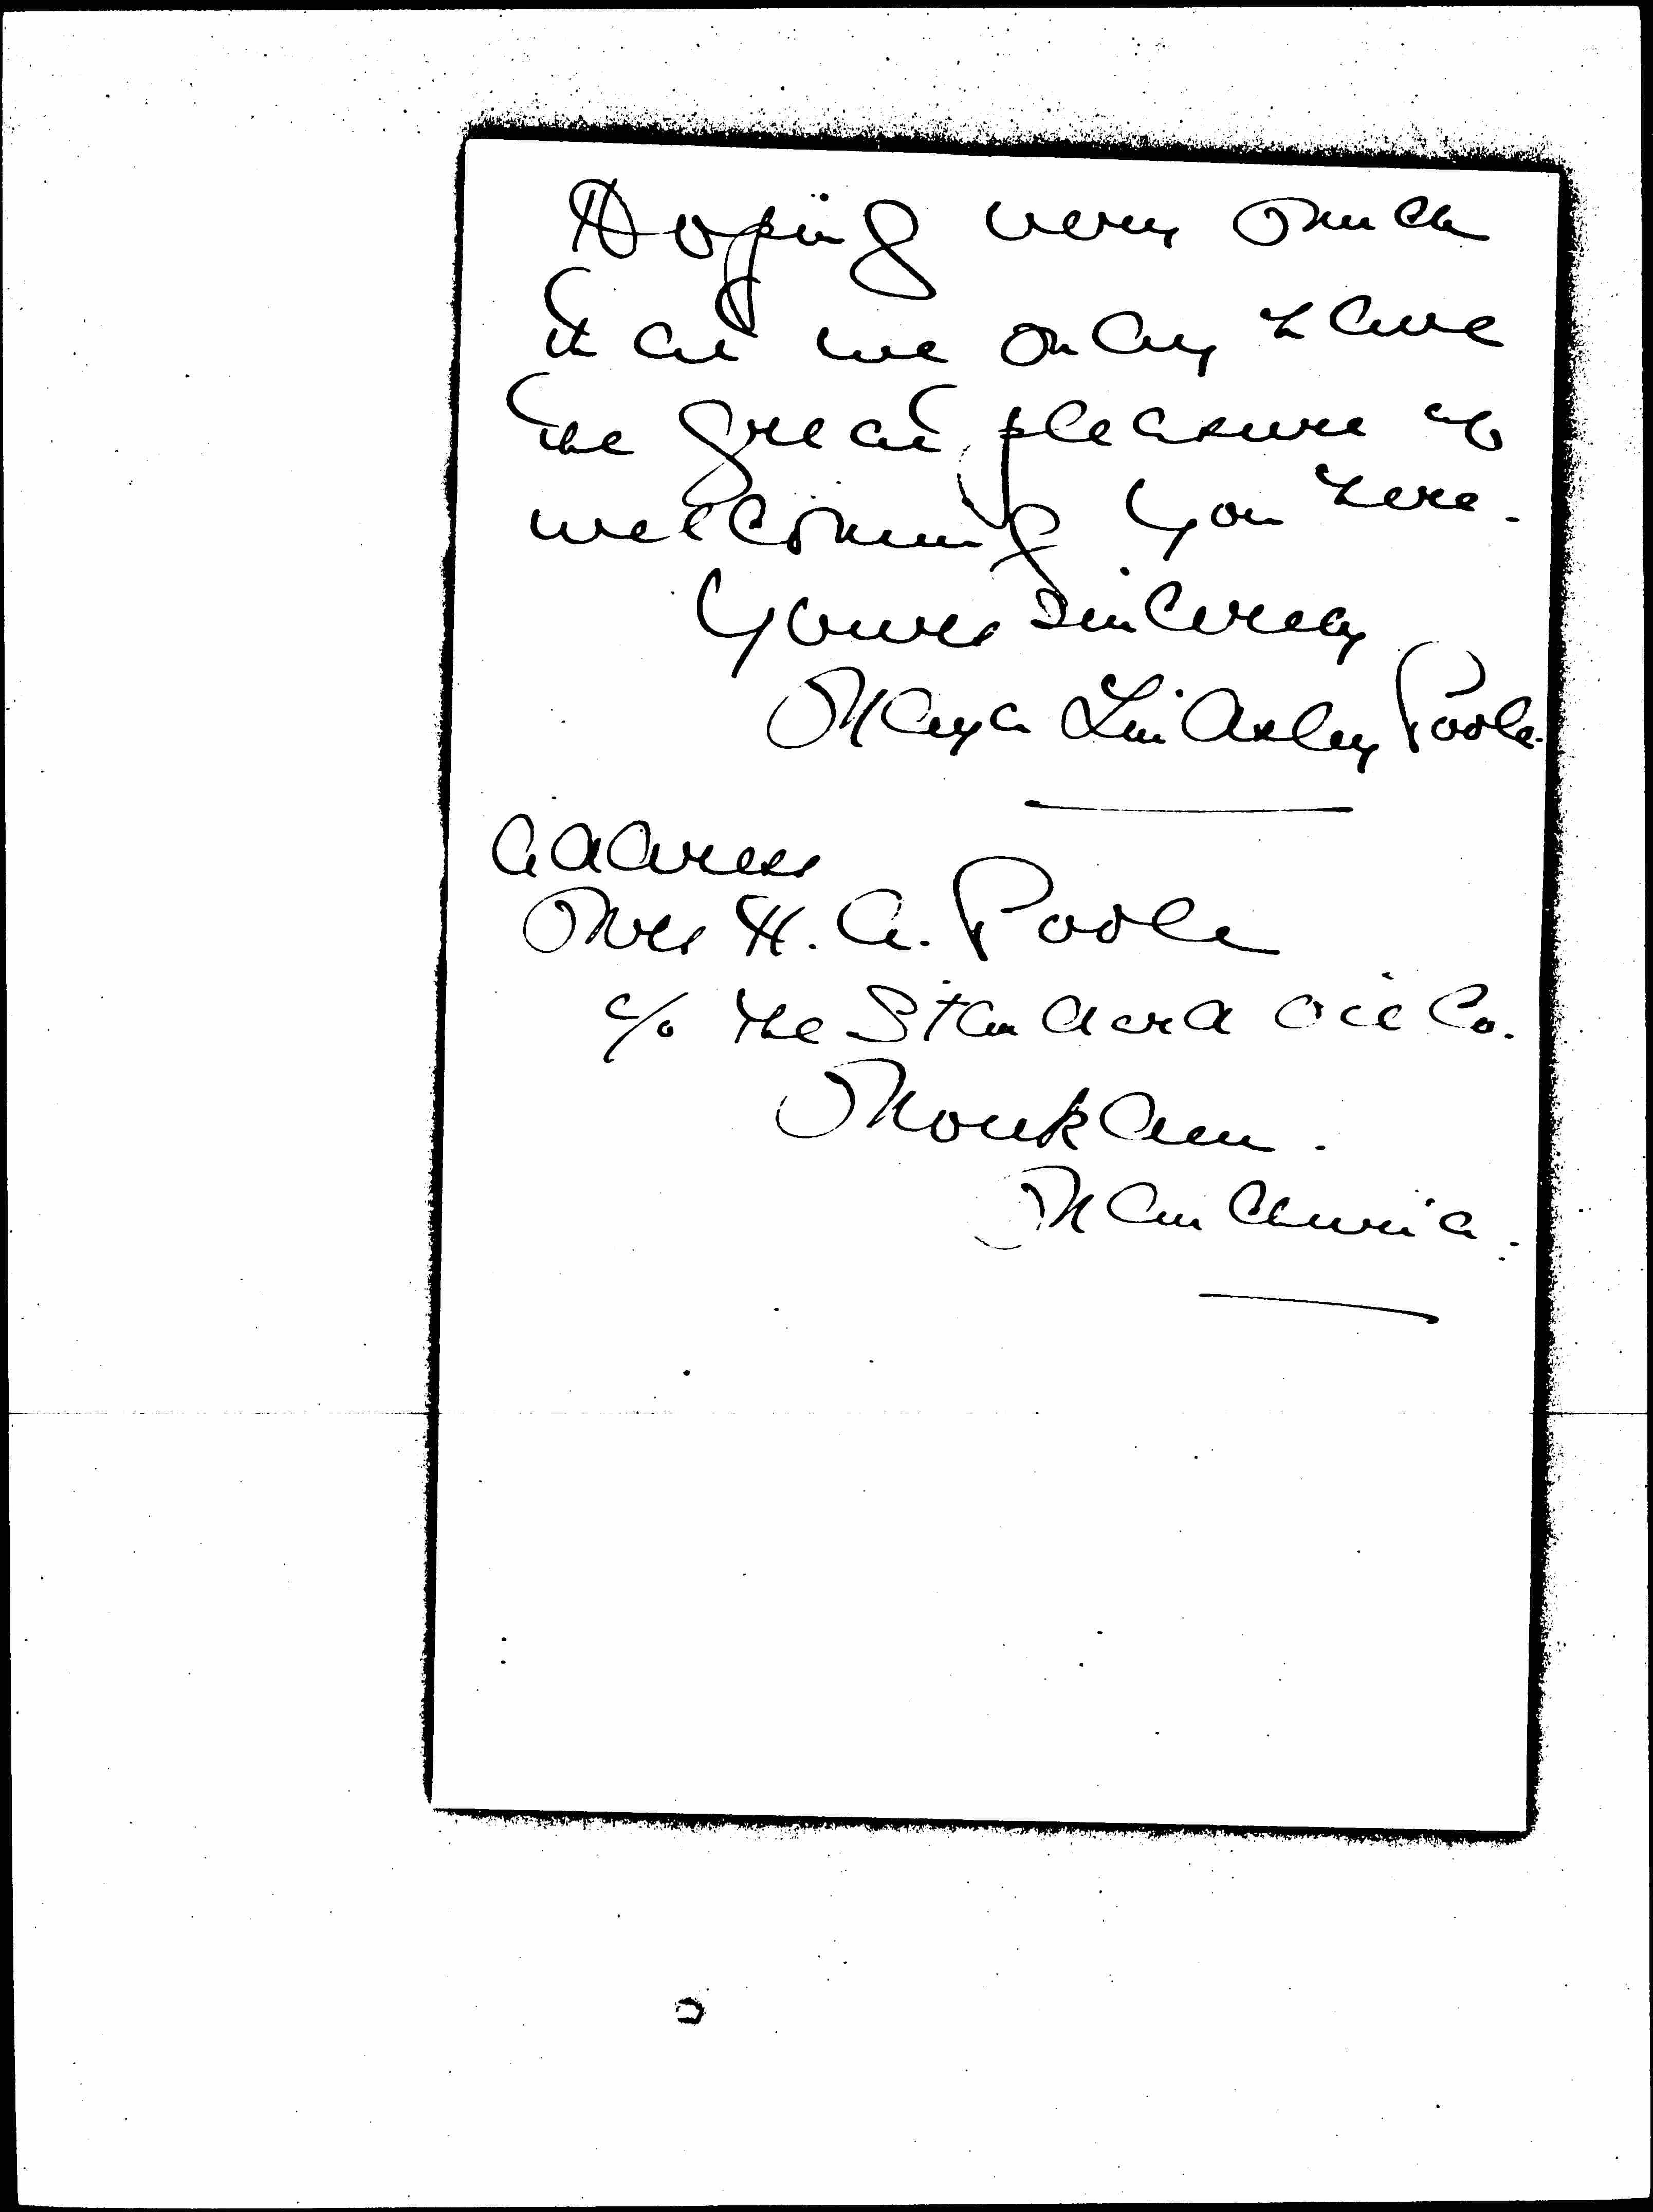 Hoping very much
that we may have
the great pleasure of
welcoming you here.
Yours Sincerely
Maya Lindsley Poole.
Address
Mrs H. A. Poole
c/o The Standard Oil Co.
Moukden.
Manchuria.